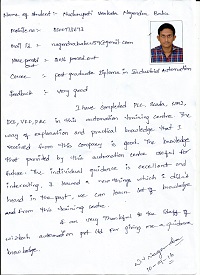 Name of Student:- Muchampati Venkata Nagendra Babu
Mobile no:-
Mail Id :- @gmail.com
Course :- post graduate Diploma in Industrial Automation
feedback :- very good
I have completed PLC, Scada, HMI,
DCS, VFD, in this automation training centre. The
way of explanation and practical knowledge that I
received from this company is good. The knowledge
that provided by this automation centre useful for
future. The individual guidance is excellent and
interesting. I learned a new things which I didn't
heard in the past, we can learn lot of knowledge
and from this training centre.
I am very Thankful to the staff of
automation pvt ltd for giving me a guidance
knowledge.